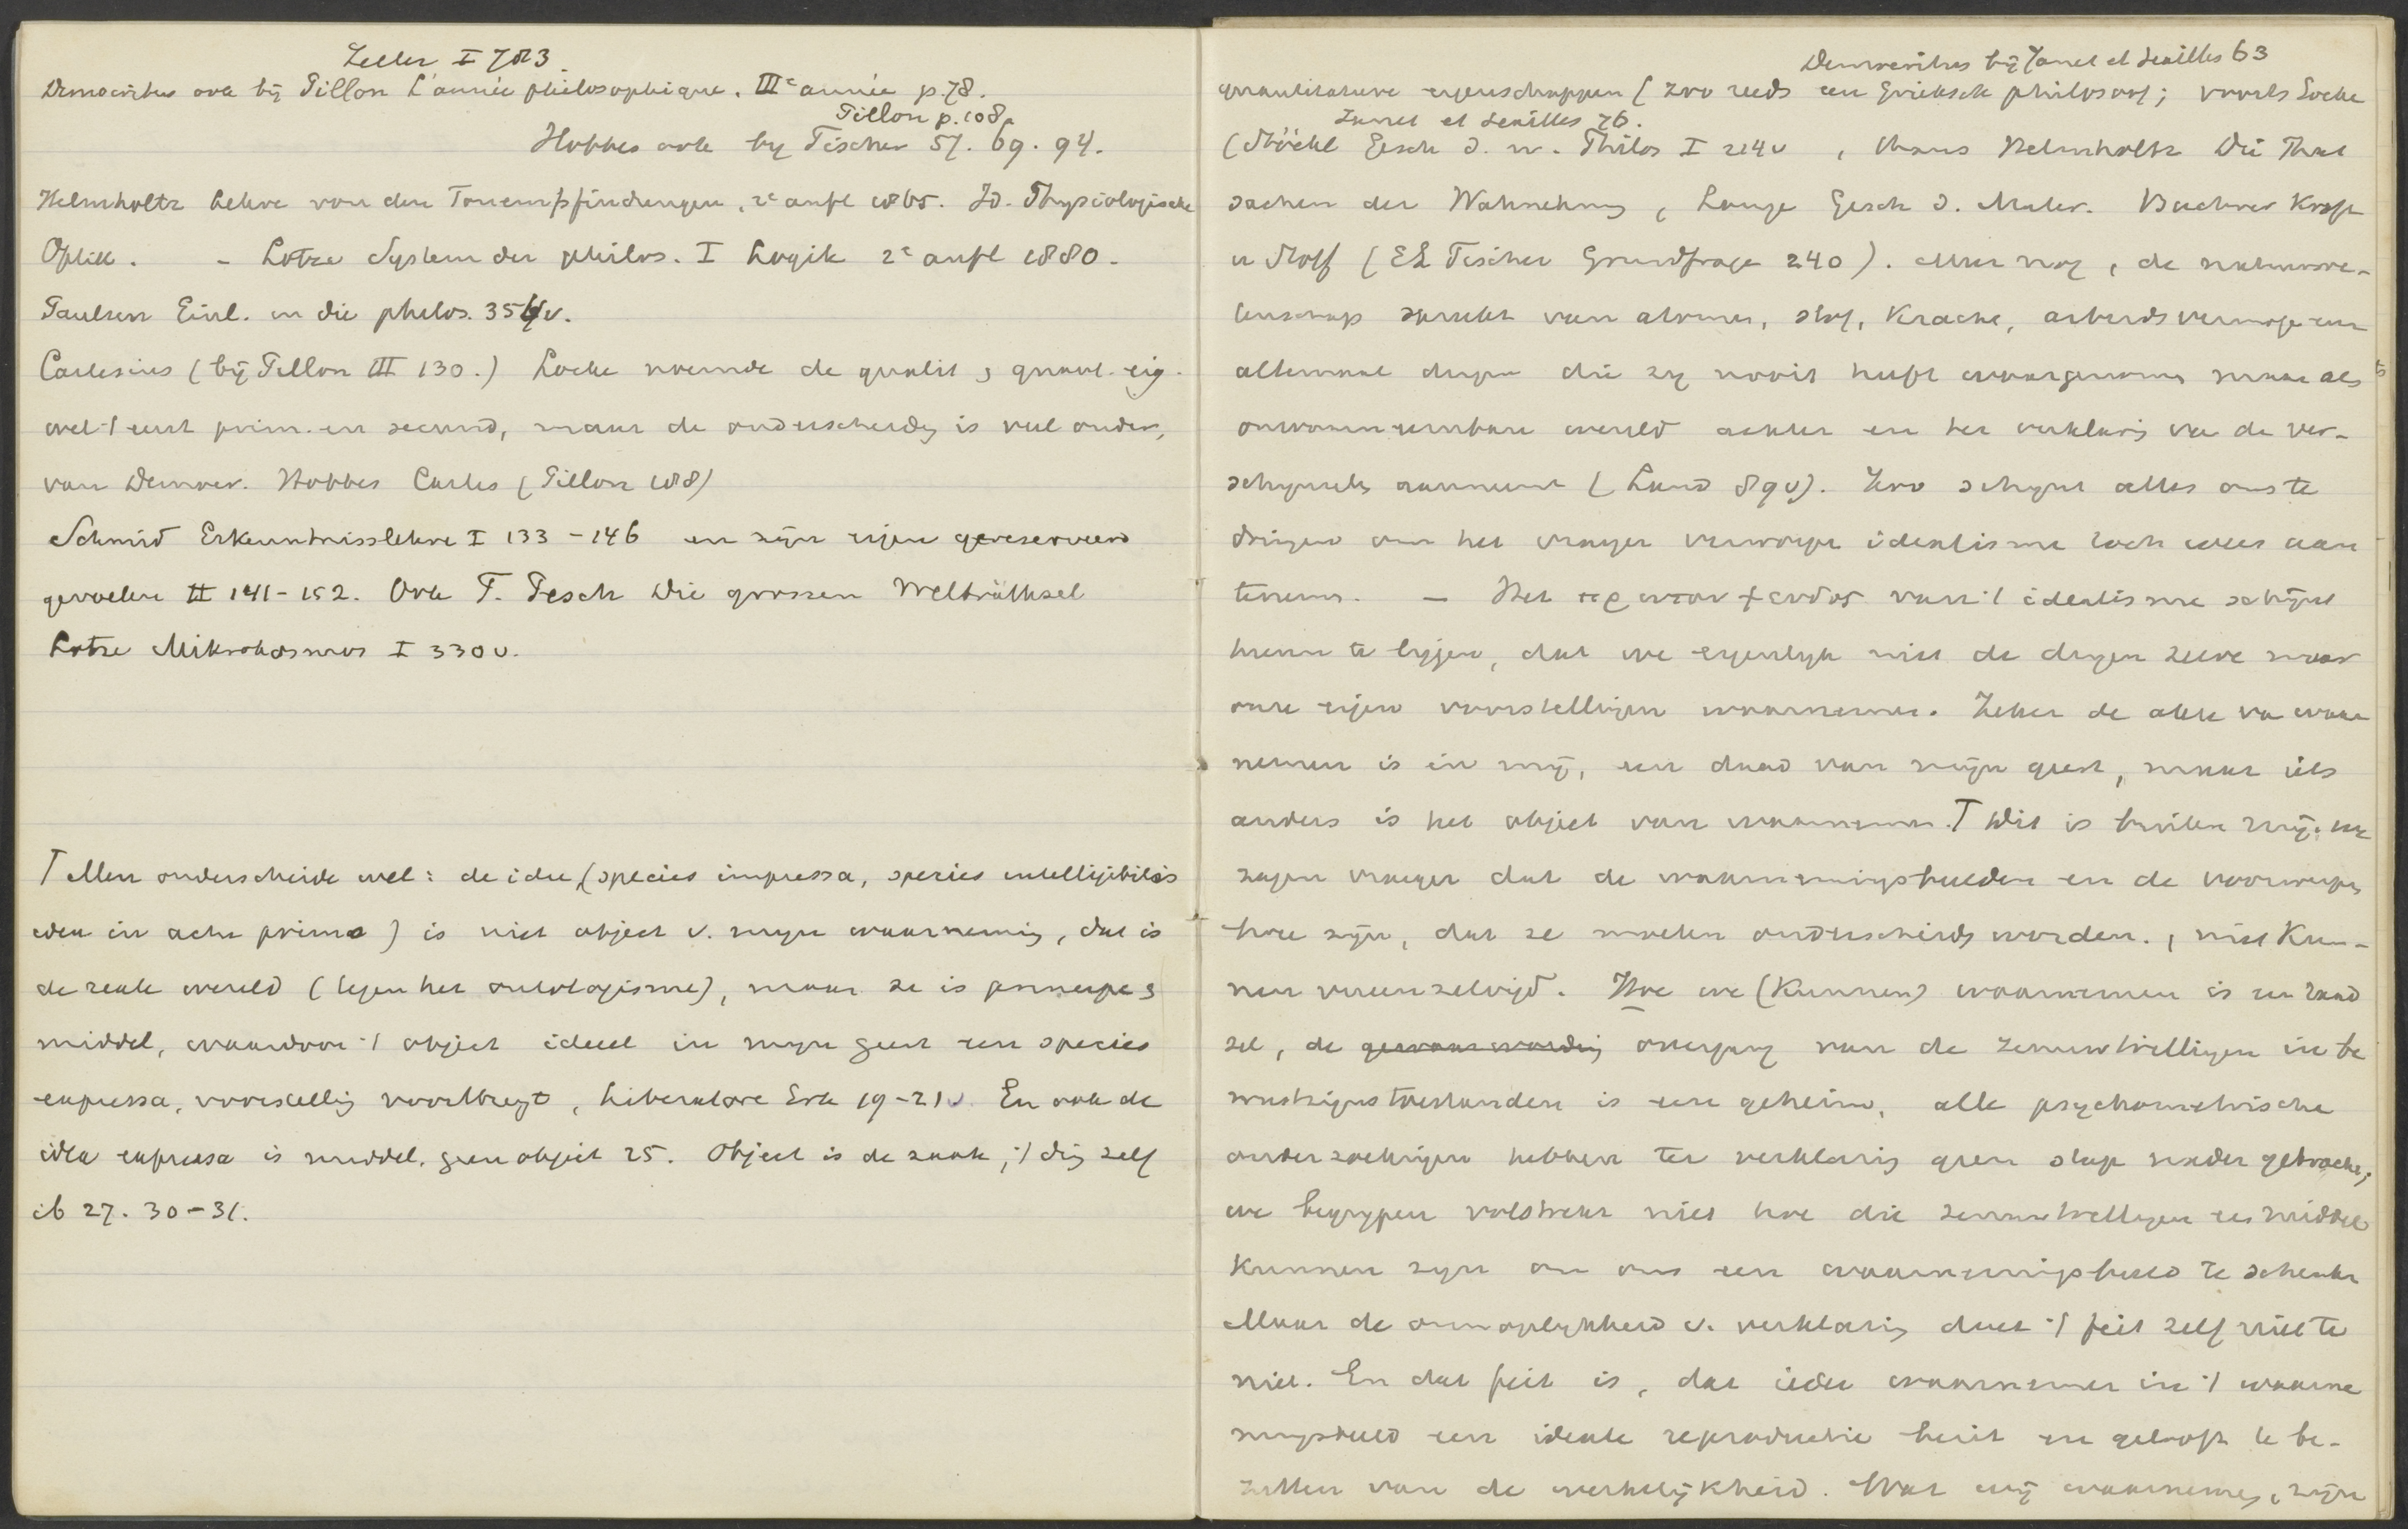 Zeller I 783
Democritus ook bij Pillon L'année philosophique. IIIe année p. 78.
Pillon p. 108
Hobbes ook by Fischer 57. 69. 94.
Helmholtz Lehre von den Tonempfindungen, 2e aufl 1865. Id. Physiologische
Optik. - Lotze System der philos. I Logik 2e aufl 1880.
Paulsen Einl. in die philos. 354v.
Cartesius (bij Pillon III 130.) Locke noemde de qualit. & quant. eig.
wel 't eerst prim. en secund, maar de onderscheidg is veel ouder,
van Democr. Hobbes Cartes (Pillon 108)
Schmid Erkenntnisslehre I 133-146 en zijn eigen gereserveerd
gevoelen II 141-152. Ook T. Pesch Die grossen Welträthsel
Lotze Mikrokosmos I 330v.
T Men onderscheide wel: de idee, (species impressa, species intelligibilis
idea in actu primo) is niet object v. mijn waarneming, dat is
de reale wereld (tegen het ontologisme), maar ze is principe &
middel, waardoor 't object ideeel in mijn geest een species
expressa, voorstellig voortbrengt, Liberatore Erk 19-21v En ook de
idea expressa is middel, geen object 25. Object is de zaak, 't ding zelf
ib 27. 30-31.
Democritus bij Janet et Seailles 63
quantitatieve eigenschappen (zoo reeds een Grieksch philosoof; voorts Locke
Janet et Seailles 76.
(Stöckl Gesch d. n. Philos I 224v , thans Helmholtz Die That
sachen der Wahrnehmg, Lange Gesch d. Mater. Buchner Kraft
u Stoff (E L Fischer Grundfrage 240). Meer nog, de natuurwe-
tenschap spreekt van atomen, stof, kracht, arbeidsvermogen en
altemaal dingen die zy nooit heeft waargenomen maar als
onwaarneembare wereld achter en ter verklaring van de ver-
schynsels aanneemt (Land 89v). Zoo schynt alles ons te
dringen om het vroeger verworpen idealisme toch weer aan
te nemen. - Het πρωτον ψευδος van 't idealisme schijnt
hierin te liggen, dat we eigenlijk niet de dingen zelve maar
onze eigen voorstellingen waarnemen. Zeker de akte van waar
nemen is in mij, een daad van mijn geest, maar iets
anders is het object van waarnemen. T Dit is buiten mij. we
zagen vroeger dat de waarnemingsbeelden en de voorwerpen
twee zijn, dat ze moeten onderscheiden worden., niet kun-
nen vereenzelvigd. Hoe we (kunnen) waarnemen is een raad
sel, de gewaarwording overgang van de zenuwtrillingen in be
wustzijnstoestanden is een geheim, alle psychometrische
onderzoekingen hebben ter verklaring geen stap nader gebracht;
we begrypen volstrekt niet hoe die zenuwtrillingen een middel
kunnen zijn om ons een waarnemingsbeeld te schenken
Maar de onmogelykheid v. verklaring doet 't feit zelf niet te
niet. En dat feit is, dat ieder waarnemer in 't waarne
mingsbeeld een ideale reproductie bezit en gelooft te be-
zitten van de werkelijkheid. Wat wij waarnemen, zijn